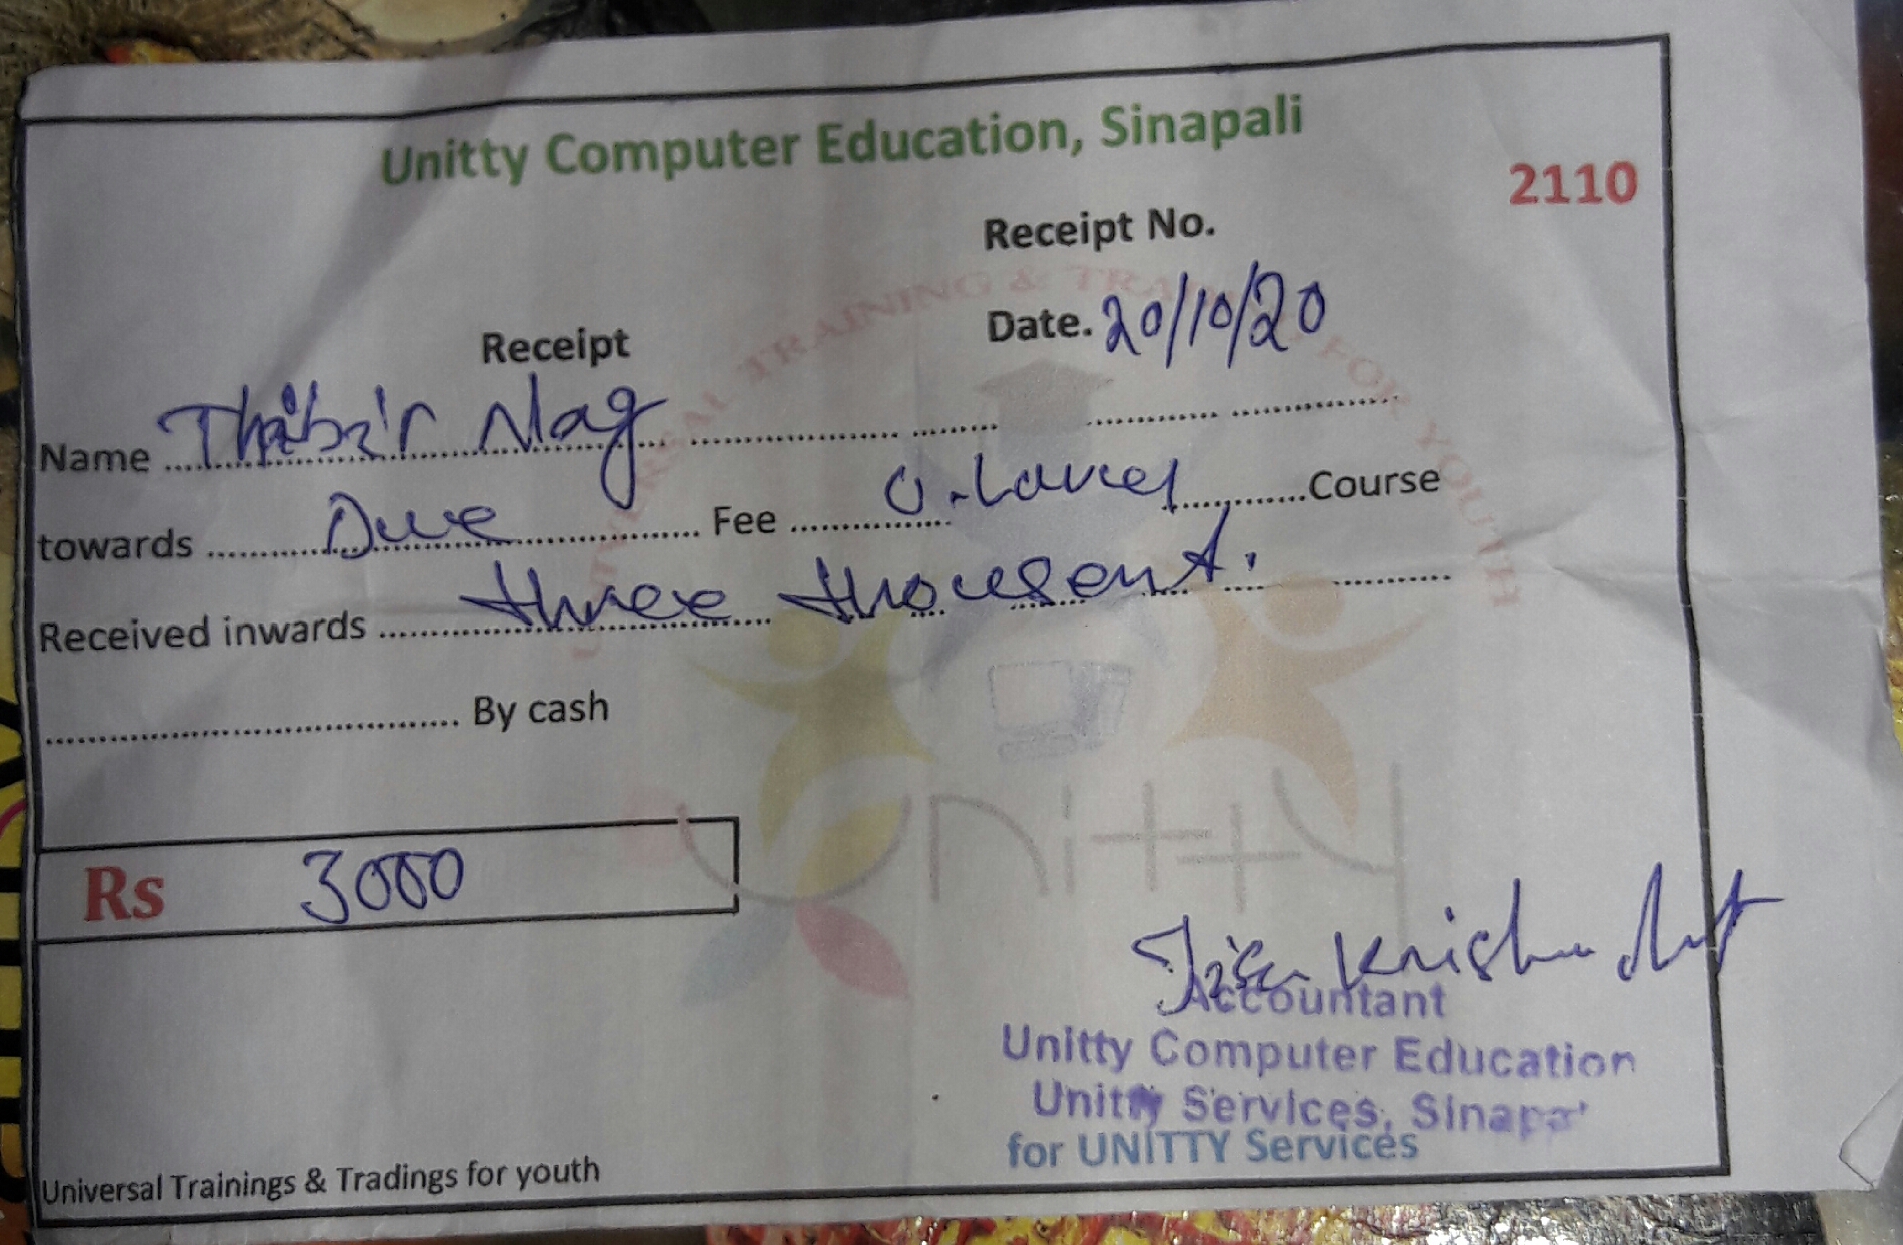 Unitty Computer Education, Sinapali
2110
Receipt No.
Receipt
Date. 20/10/20
Name Thabir Nag
towards Due Fee O. Lavel Course
Received inwards three thousent.
By cash
Rs 3000
Krishna
Accountant
Unitty Computer Education
Unitty Services,
for UNITTY Services
Universal Trainings & Tradings for youth
UNIVERSAL TRAINING & FOR YOUTH
Unitty